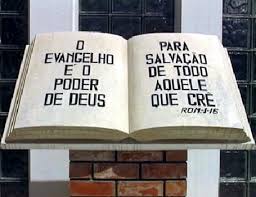 O
EVANGELHO
E O
PODER
DE DEUS
PARA
SALVAÇÃO
DE TODO
AQUELE
QUE CRÊ
ROM-1-16